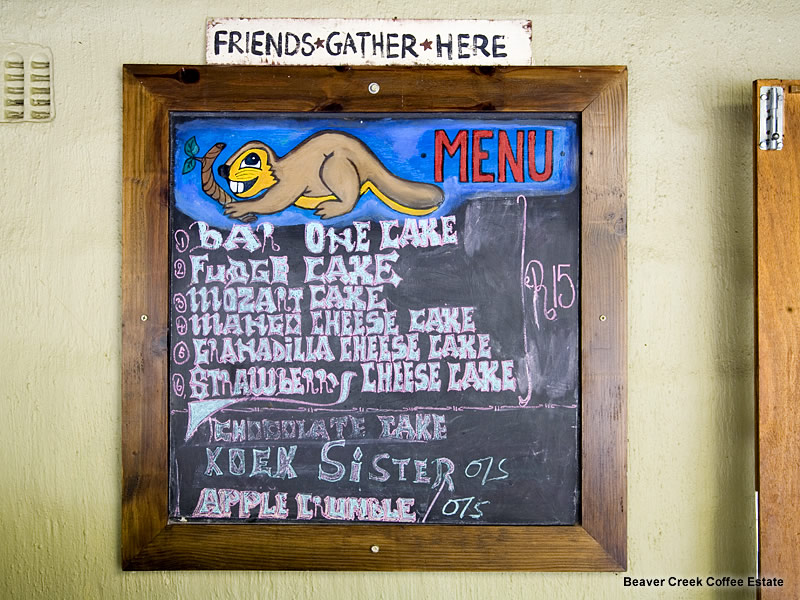 FRIENDS★GATHER★HERE
MENU
1 BAR ONE CAKE
2 FUDGE CAKE
3 MOZART CAKE
4 MANGO CHEESE CAKE
5 GRANADILLA CHEESE CAKE
6 STRAWBERRY CHEESE CAKE
R15
CHOCOLATE CAKE
KOEK SISTER O/S
APPLE CRUMBLE / O/S
Beaver Creek Coffee Estate